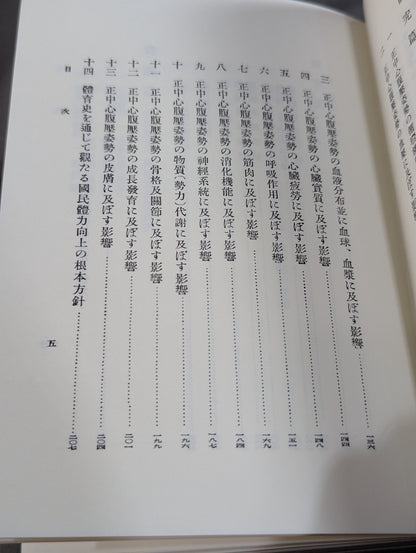 三 正中心腹壓姿勢の血液分布並に血球、血漿に及ぼす影響……一三六
四 正中心腹壓姿勢の心臟實質に及ぼす影響……一四四
五 正中心腹壓姿勢の心臟疲勞に及ぼす影響……一四八
六 正中心腹壓姿勢の呼吸作用に及ぼす影響……一五一
七 正中心腹壓姿勢の筋肉に及ぼす影響……一六九
八 正中心腹壓姿勢の消化機能に及ぼす影響……一八四
九 正中心腹壓姿勢の神經系統に及ぼす影響……一八七
十 正中心腹壓姿勢の物質(勢力)代謝に及ぼす影響……一九六
十一 正中心腹壓姿勢の骨格及關節に及ぼす影響……一九九
十二 正中心腹壓姿勢の成長發育に及ぼす影響……二〇一
十三 正中心腹壓姿勢の皮膚に及ぼす影響……二〇四
十四 體育史を通じて觀たる國民體力向上の根本方針……二〇七
目次
五